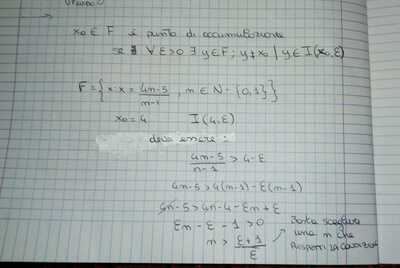 x₀ ∈ F è punto di accumulazione
se ∀ε>0 ∃ y∈F; y≠x₀ | y∈I(x₀,ε)
F = {x: x = (4n-5)/(n-1), n ∈ N - {0,1}}
x₀ = 4 I(4,ε)
deve essere:
(4n-5)/(n-1) > 4-ε
4n-5 > 4(n-1) - ε(n-1)
4n-5 > 4n-4-εn+ε
εn - ε - 1 > 0
n > (ε+1)/ε
Basta scegliere
una n che
rispetti la